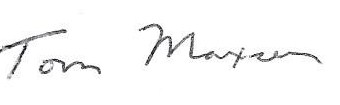 Tom Maxsen